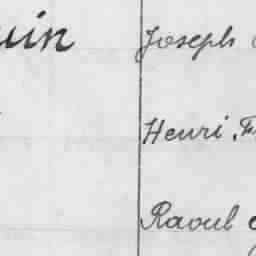 uin Joseph
Henri
Raoul